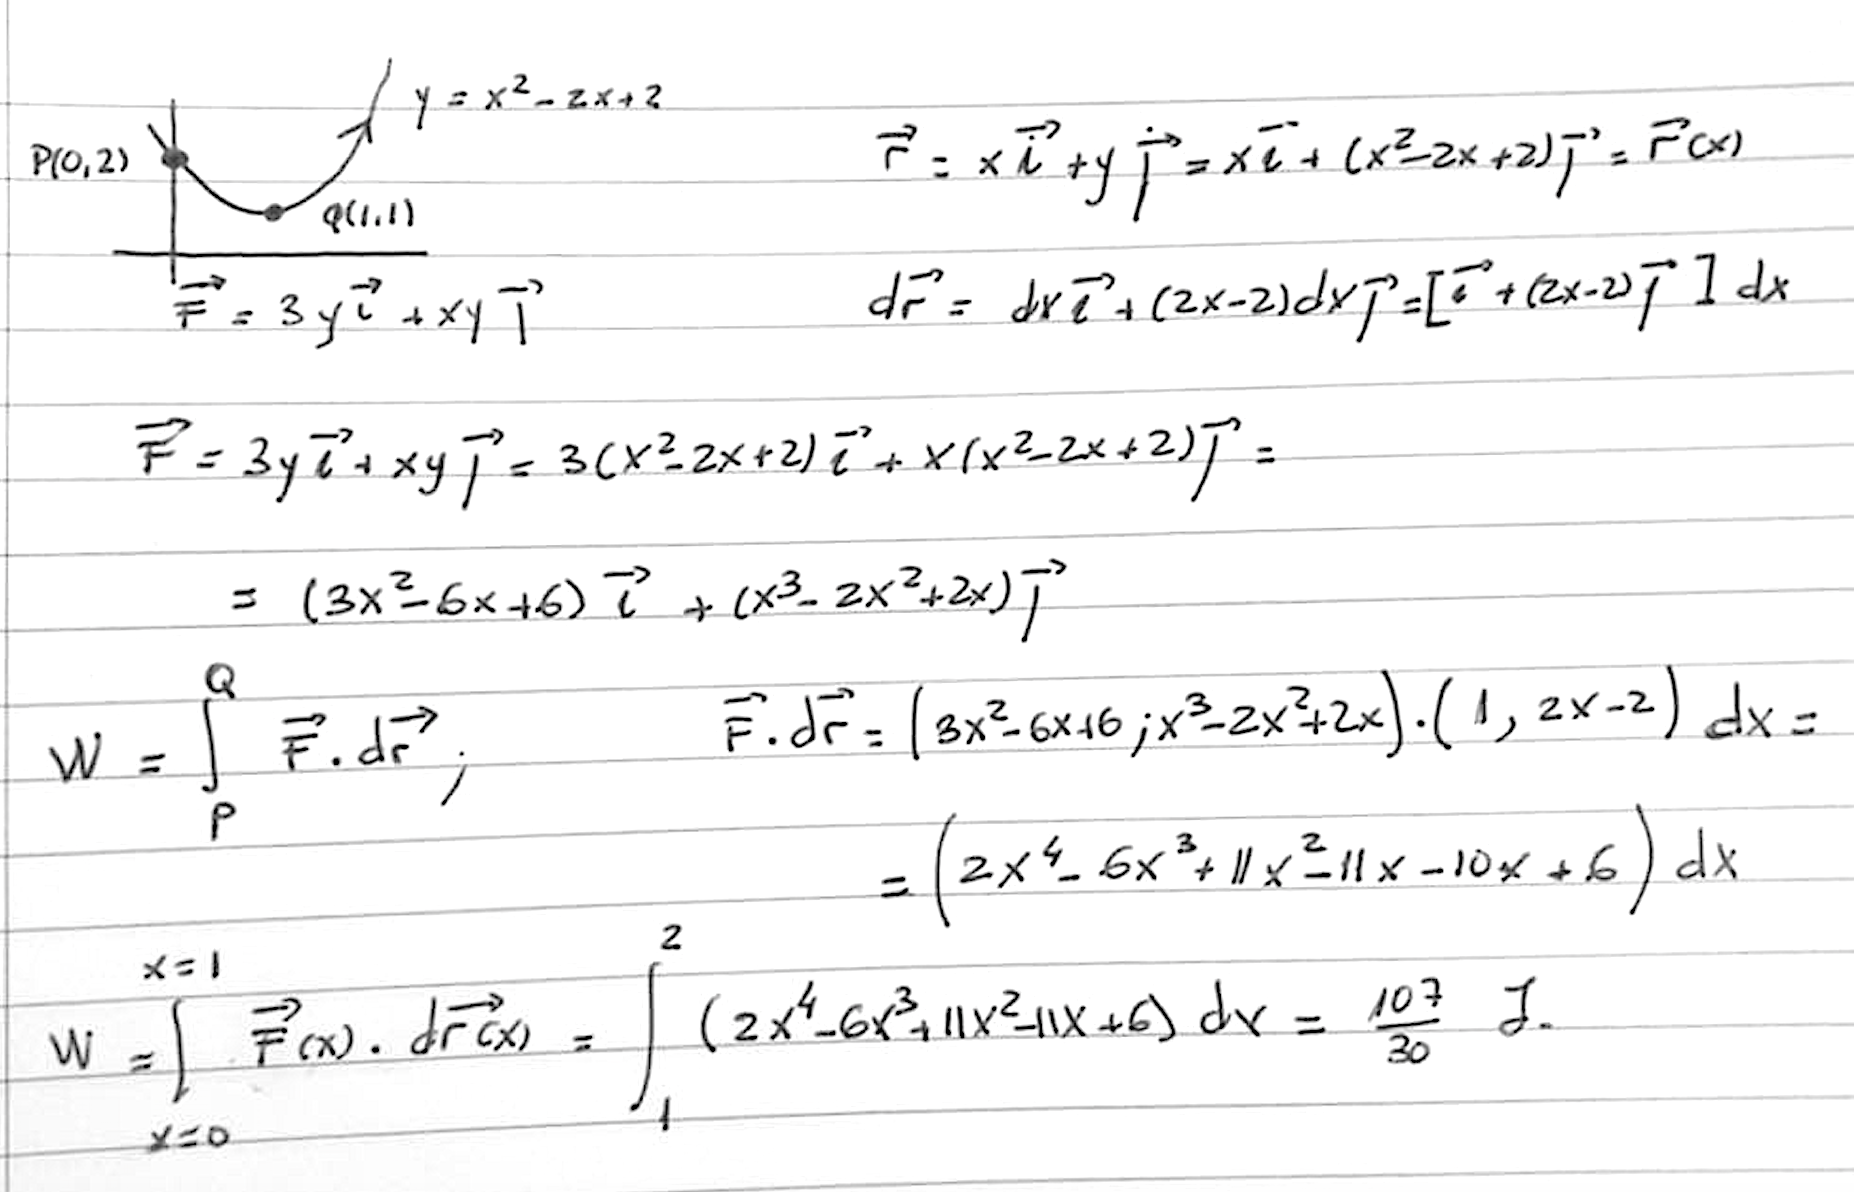 y = x² - 2x + 2
P(0,2)
Q(1,1)
F⃗ = 3y i⃗ + xy j⃗
r⃗ = x i⃗ + y j⃗ = x i⃗ + (x² - 2x + 2) j⃗ = r⃗(x)
dr⃗ = dx i⃗ + (2x-2) dx j⃗ = [i⃗ + (2x-2) j⃗] dx
F⃗ = 3y i⃗ + xy j⃗ = 3(x² - 2x + 2) i⃗ + x(x² - 2x + 2) j⃗ =
= (3x² - 6x + 6) i⃗ + (x³ - 2x² + 2x) j⃗
W = ∫_P^Q F⃗ . dr⃗ ; F⃗ . dr⃗ = (3x² - 6x + 6 ; x³ - 2x² + 2x) . (1, 2x-2) dx =
= (2x⁴ - 6x³ + 11x² - 11x - 10x + 6) dx
W = ∫_{x=0}^{x=1} F⃗(x) . dr⃗(x) = ∫_1^2 (2x⁴ - 6x³ + 11x² - 11x + 6) dx = 107/30 J.